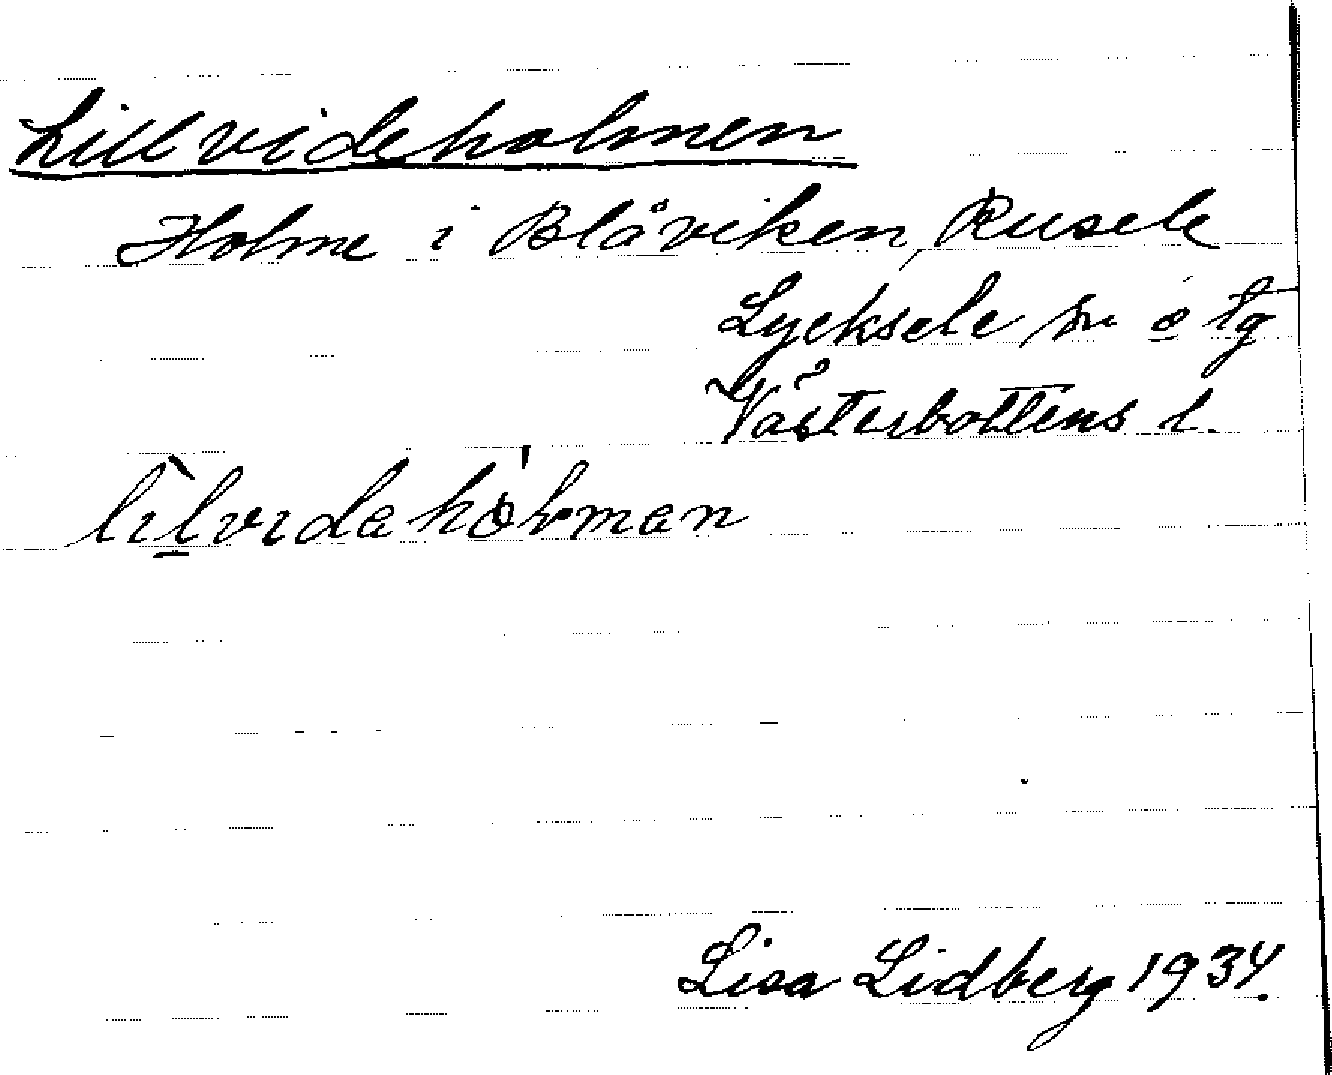 Lillvideholmen
Holme i Blåviken, Rusele
Lycksele sn o tg
Västerbottens l.
lìl̠vιdahòlman
Lisa Lidberg 1934.